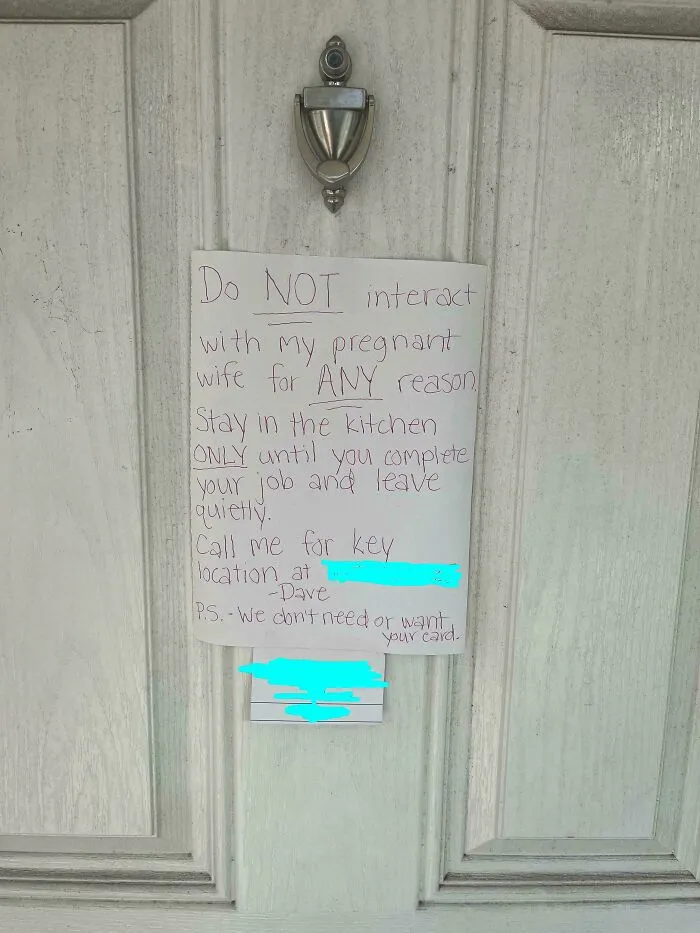 Do NOT interact
with my pregnant
wife for ANY reason.
Stay in the kitchen
ONLY until you complete
your job and leave
quietly.
Call me for key
location at
-Dave
P.S. - We don't need or want
your card.